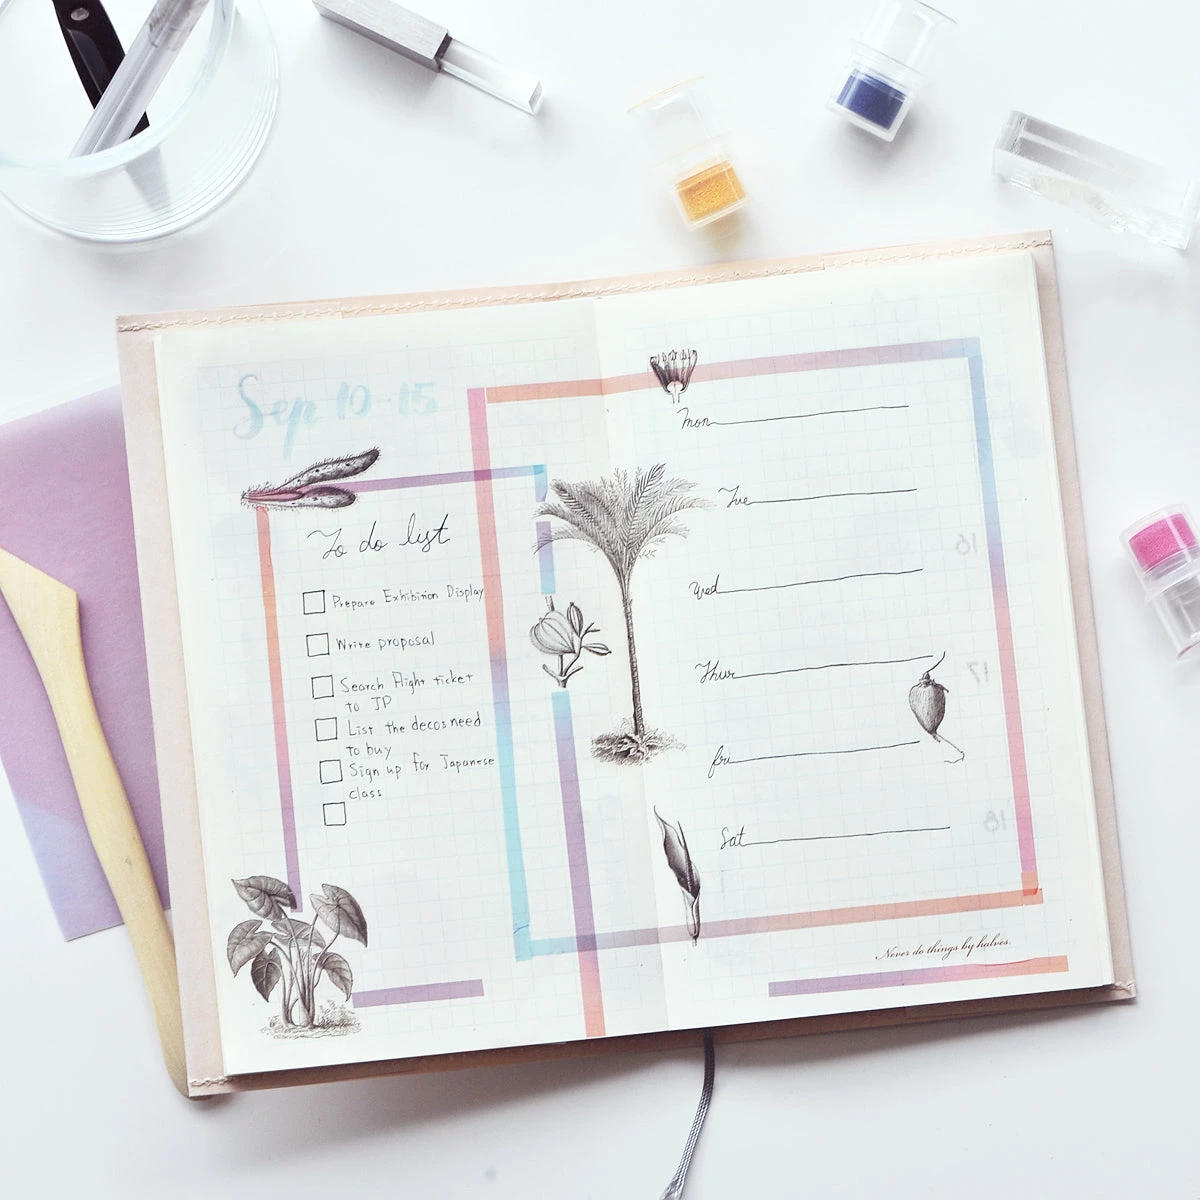 Sep 10-15
To do list
Prepare Exhibition Display
Write proposal
Search flight ticket
to JP
List the decos need
to buy
Sign up for Japanese
class
Mon
Tue
Wed
Thur
fri
Sat
16
17
18
Never do things by halves.